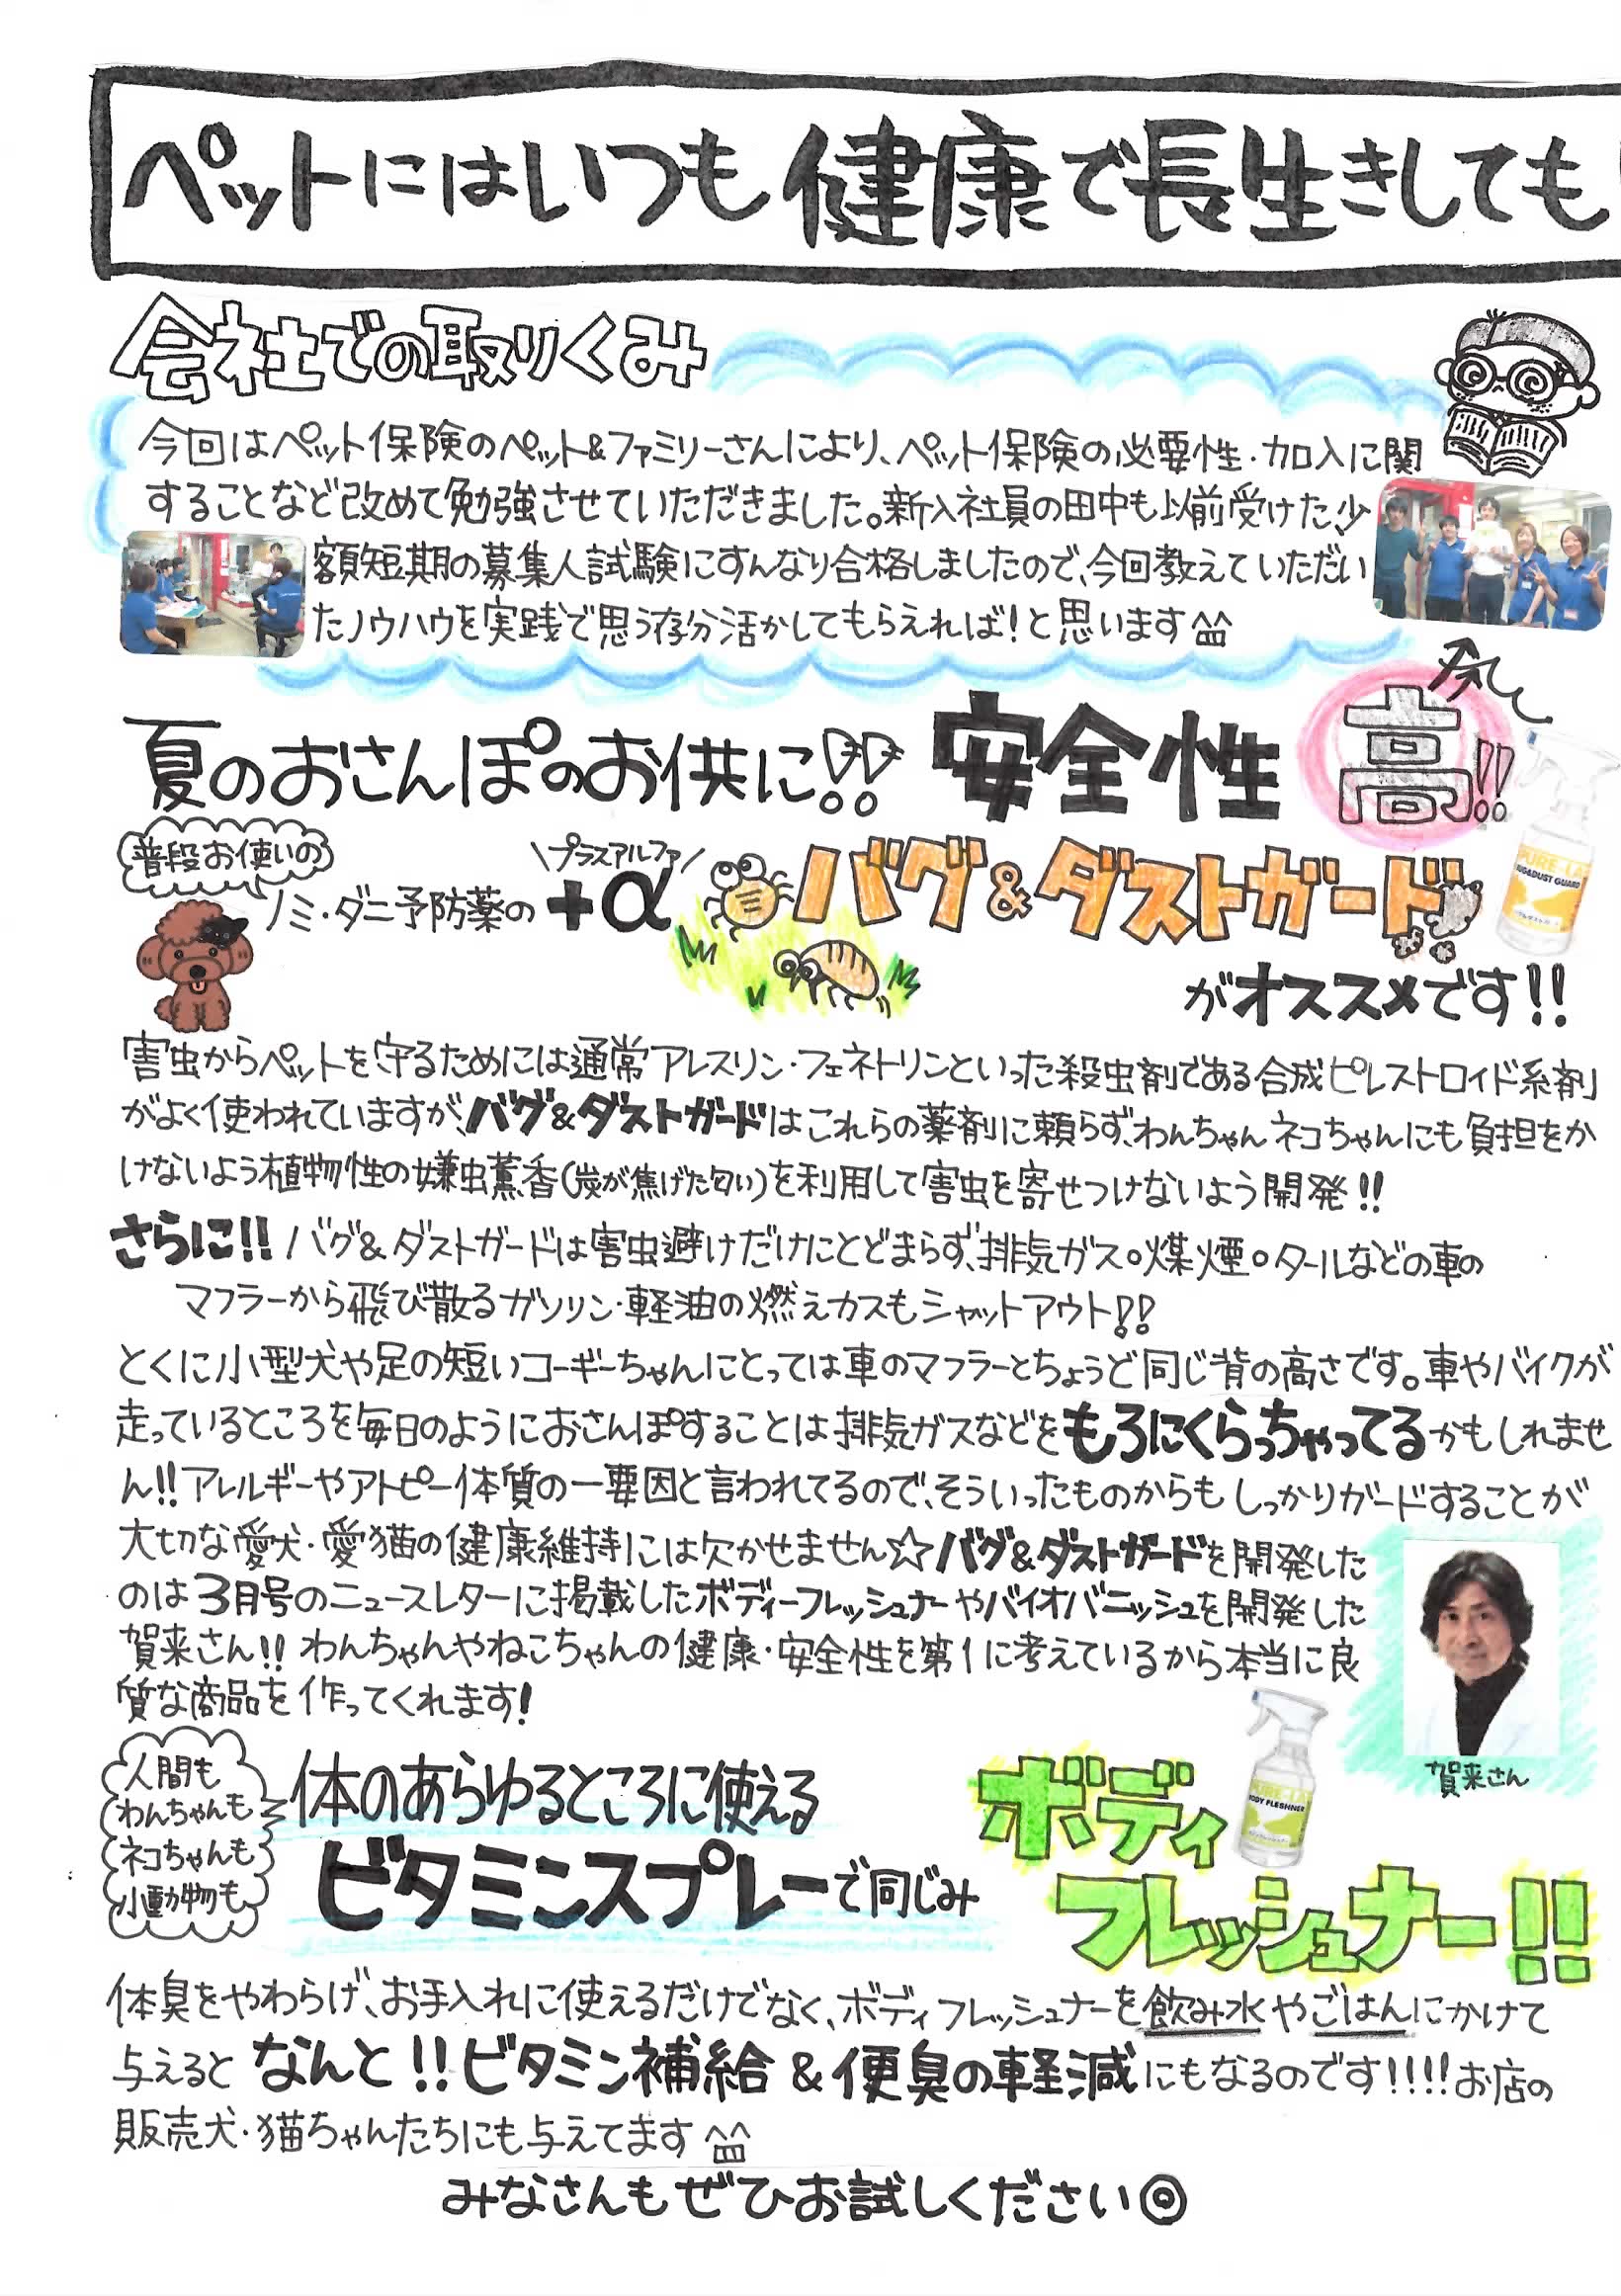 ペットにはいつも健康で長生きしても
会社での取りくみ
今回はペット保険のペット&ファミリーさんにより、ペット保険の必要性・加入に関
することなど改めて勉強させていただきました。新入社員の田中も以前受けた少
額短期の募集人試験にすんなり合格しましたので、今回教えていただい
たノウハウを実践で思う存分活かしてもらえれば!と思います^^
夏のおさんぽのお供に!! 安全性 高!!
普段お使いの
ノミ・ダニ予防薬の
\プラスアルファ/
+α
バグ&ダストガード
がオススメです!!
PURE-LA
BUG&DUST GUARD
害虫からペットを守るためには通常アレスリン・フェネトリンといった殺虫剤である合成ピレストロイド系剤
がよく使われていますが、バグ&ダストガードはこれらの薬剤に頼らず、わんちゃんネコちゃんにも負担をか
けないよう植物性の嫌虫薫香(炭が焦げた匂い)を利用して害虫を寄せつけないよう開発!!
さらに!! バグ&ダストガードは害虫避けだけにとどまらず、排気ガス。煤煙。タールなどの車の
マフラーから飛び散るガソリン・軽油の燃えカスもシャットアウト!!
とくに小型犬や足の短いコーギーちゃんにとっては車のマフラーとちょうど同じ背の高さです。車やバイクが
走っているところを毎日のようにおさんぽすることは排気ガスなどをもろにくらっちゃってるかもしれませ
ん!!アレルギーやアトピー体質の一要因と言われてるので、そういったものからもしっかりガードすることが
大切な愛犬・愛猫の健康維持には欠かせません☆バグ&ダストガードを開発した
のは3月号のニュースレターに掲載したボディーフレッシュナーやバイオバニッシュを開発した
賀来さん!! わんちゃんやねこちゃんの健康・安全性を第1に考えているから本当に良
質な商品を作ってくれます!
賀来さん
人間も
わんちゃんも
ネコちゃんも
小動物も
体のあらゆるところに使える
ビタミンスプレーで同じみ
ボディ
フレッシュナー!!
PURE-LA
BODY FLESHNER
体臭をやわらげ、お手入れに使えるだけでなく、ボディフレッシュナーを飲み水やごはんにかけて
与えると なんと!!ビタミン補給&便臭の軽減にもなるのです!!!!お店の
販売犬・猫ちゃんたちにも与えてます^^
みなさんもぜひお試しください◎